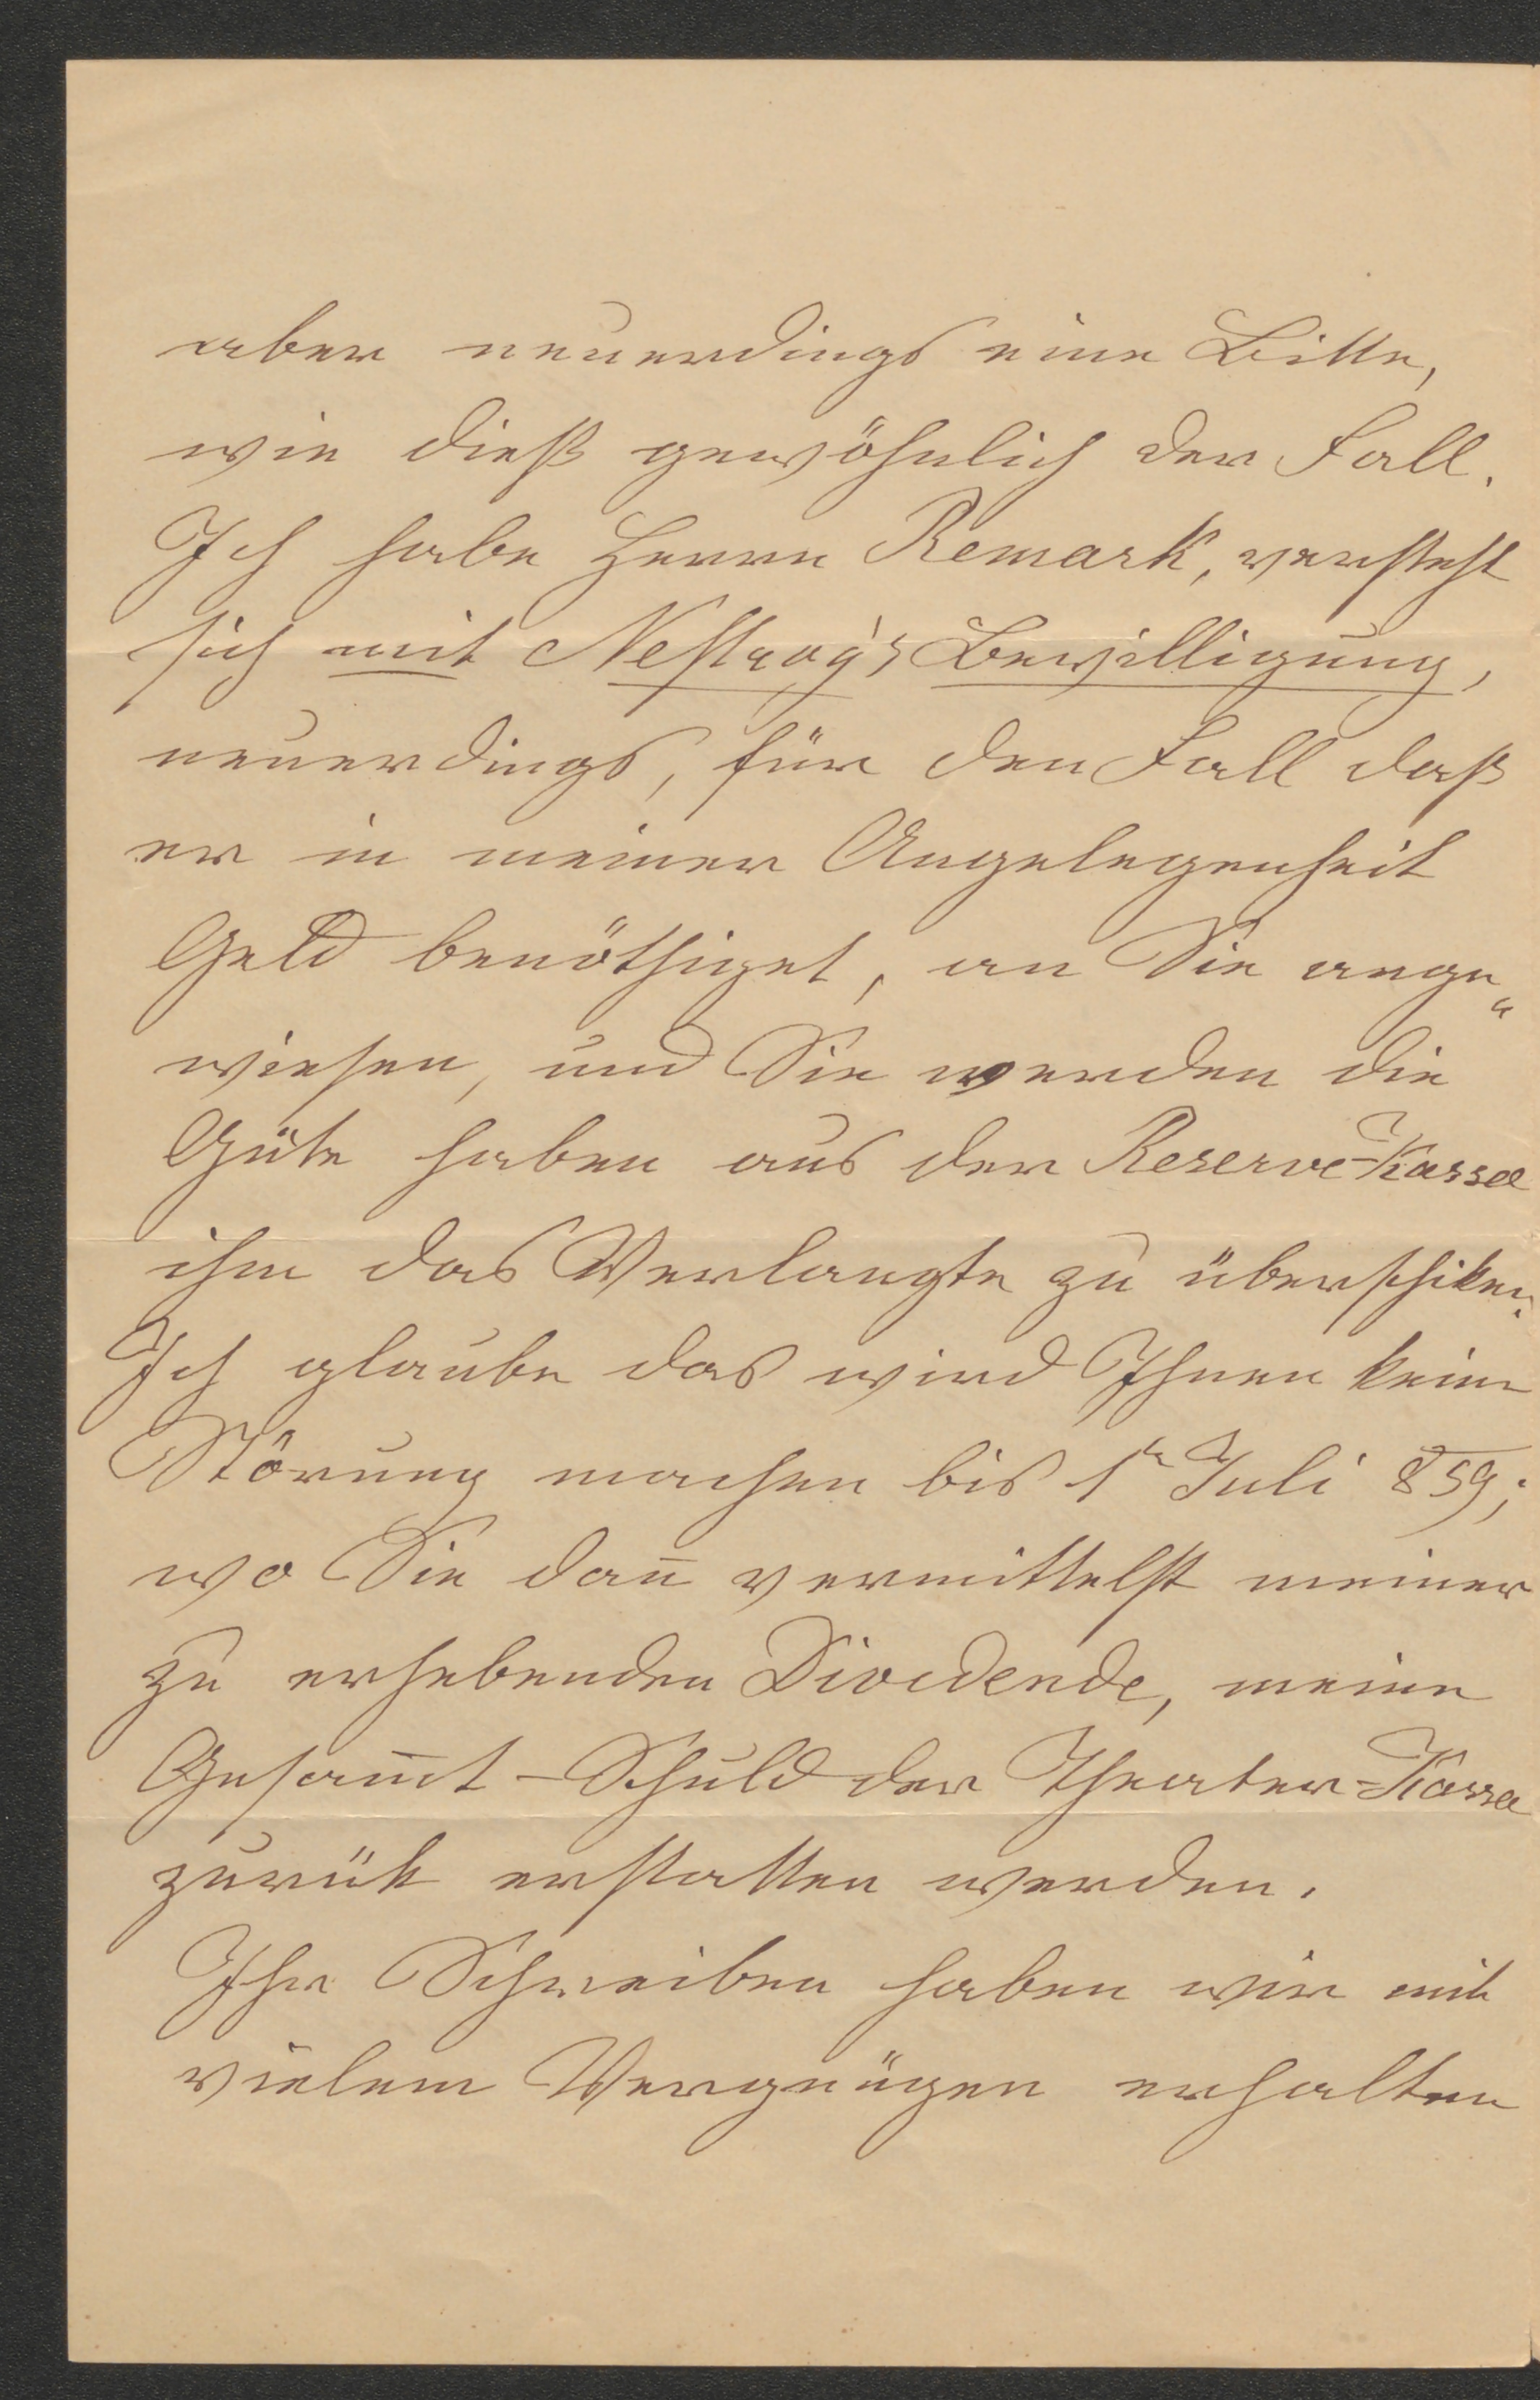 aber neuerdings eine Bitte,
wie dieß gewöhnlich der Fall.
Ich habe Herrn Remark, versteht
sich mit Nestroy's Bewilligung,
neuerdings, für den Fall daß
er in meiner Angelegenheit
Geld benöthiget, an Sie ange„
wiesen, und Sie werden die
Güte haben aus der Reserve-Kassa
ihm das Verlangte zu überschiken.
Ich glaube das wird Ihnen keine
Störung machen bis 1t Juli 859;
wo Sie dan̄ vermittelst meiner
zu erhebenden Dividende, meine
Gesam̄t-Schuld der Theater-Kassa
zurük erstatten werden.
Ihr Schreiben haben wir mit
vielem Vergnügen erhalten